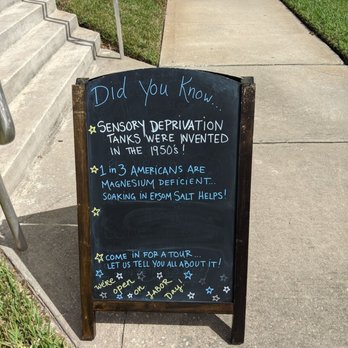 Did You Know...
SENSORY DEPRIVATION
TANKS WERE INVENTED
IN THE 1950's!
1 in 3 AMERICANS ARE
MAGNESIUM DEFICIENT...
SOAKING IN EPSOM SALT HELPS!
COME IN FOR A TOUR...
LET US TELL YOU ALL ABOUT IT!
We're open on LABOR Day!